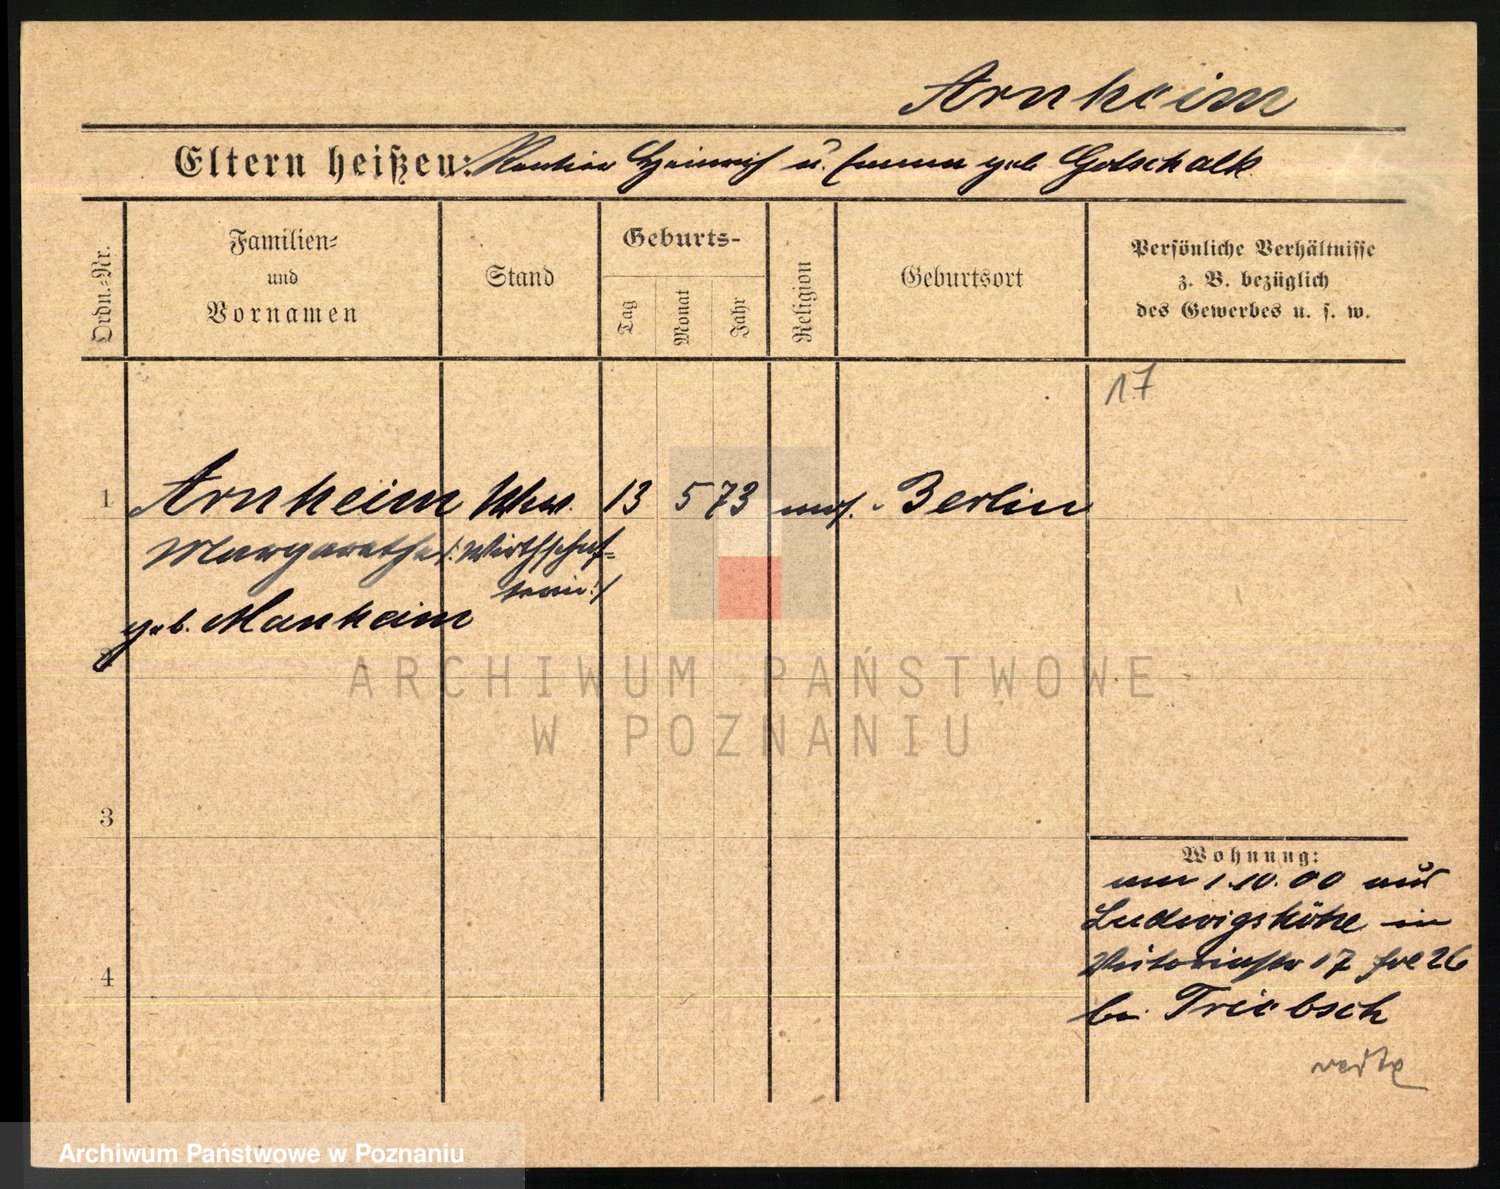 Arnheim
Eltern heißen: Rentier Heinrich u. Emma geb Gotschalk
Ordn.-Nr.
Familien-
und
Vornamen
Stand
Geburts-
Tag
Monat
Jahr
Religion
Geburtsort
Persönliche Verhältnisse
z. B. bezüglich
des Gewerbes u. s. w.
17
1 Arnheim Wwe. 13 5 73 mos. Berlin
Margarethe /: Wirthschaf-
terin :/
geb. Manheim
3
4
Wohnung:
am 1.10.00 aus
Ludwigshöhe in
Viktoriastr 17 fol 26
bei Triebsch
ARCHIWUM PAŃSTWOWE
W POZNANIU
Archiwum Państwowe w Poznaniu